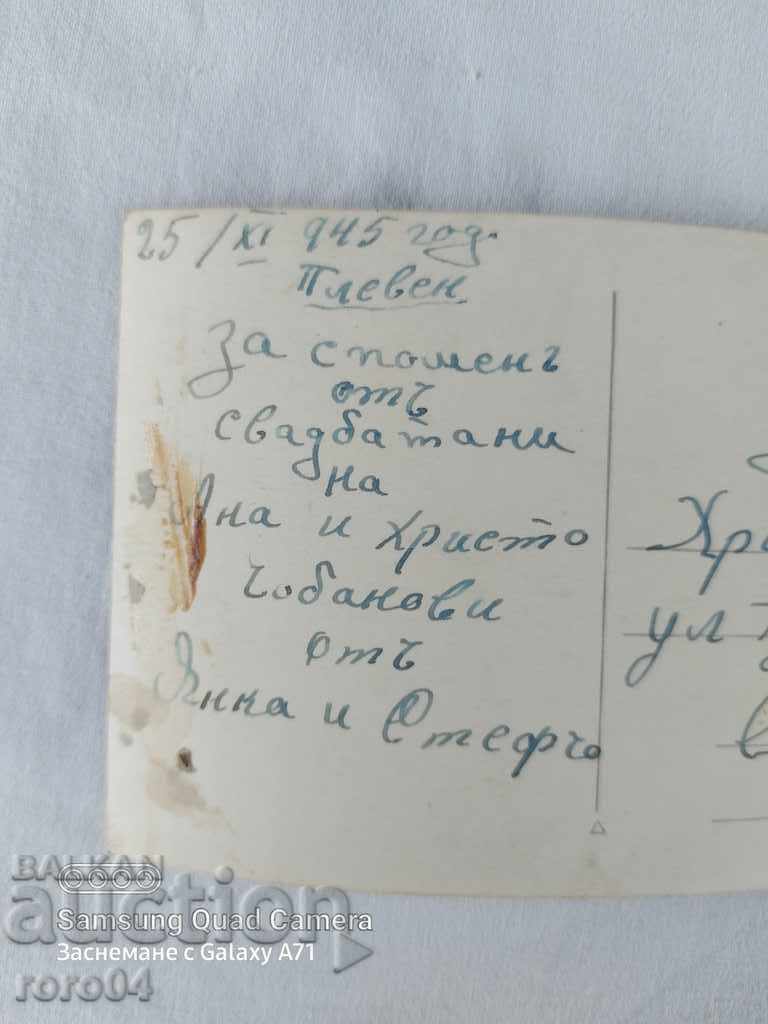 25/XI 945 год.
Плевен
За споменъ
отъ
свадбата ни
на
Яна и Христо
Чобанови
отъ
Янка и Стефчо
ул
BALKAN
auction
Samsung Quad Camera
Заснемане с Galaxy A71
roro04